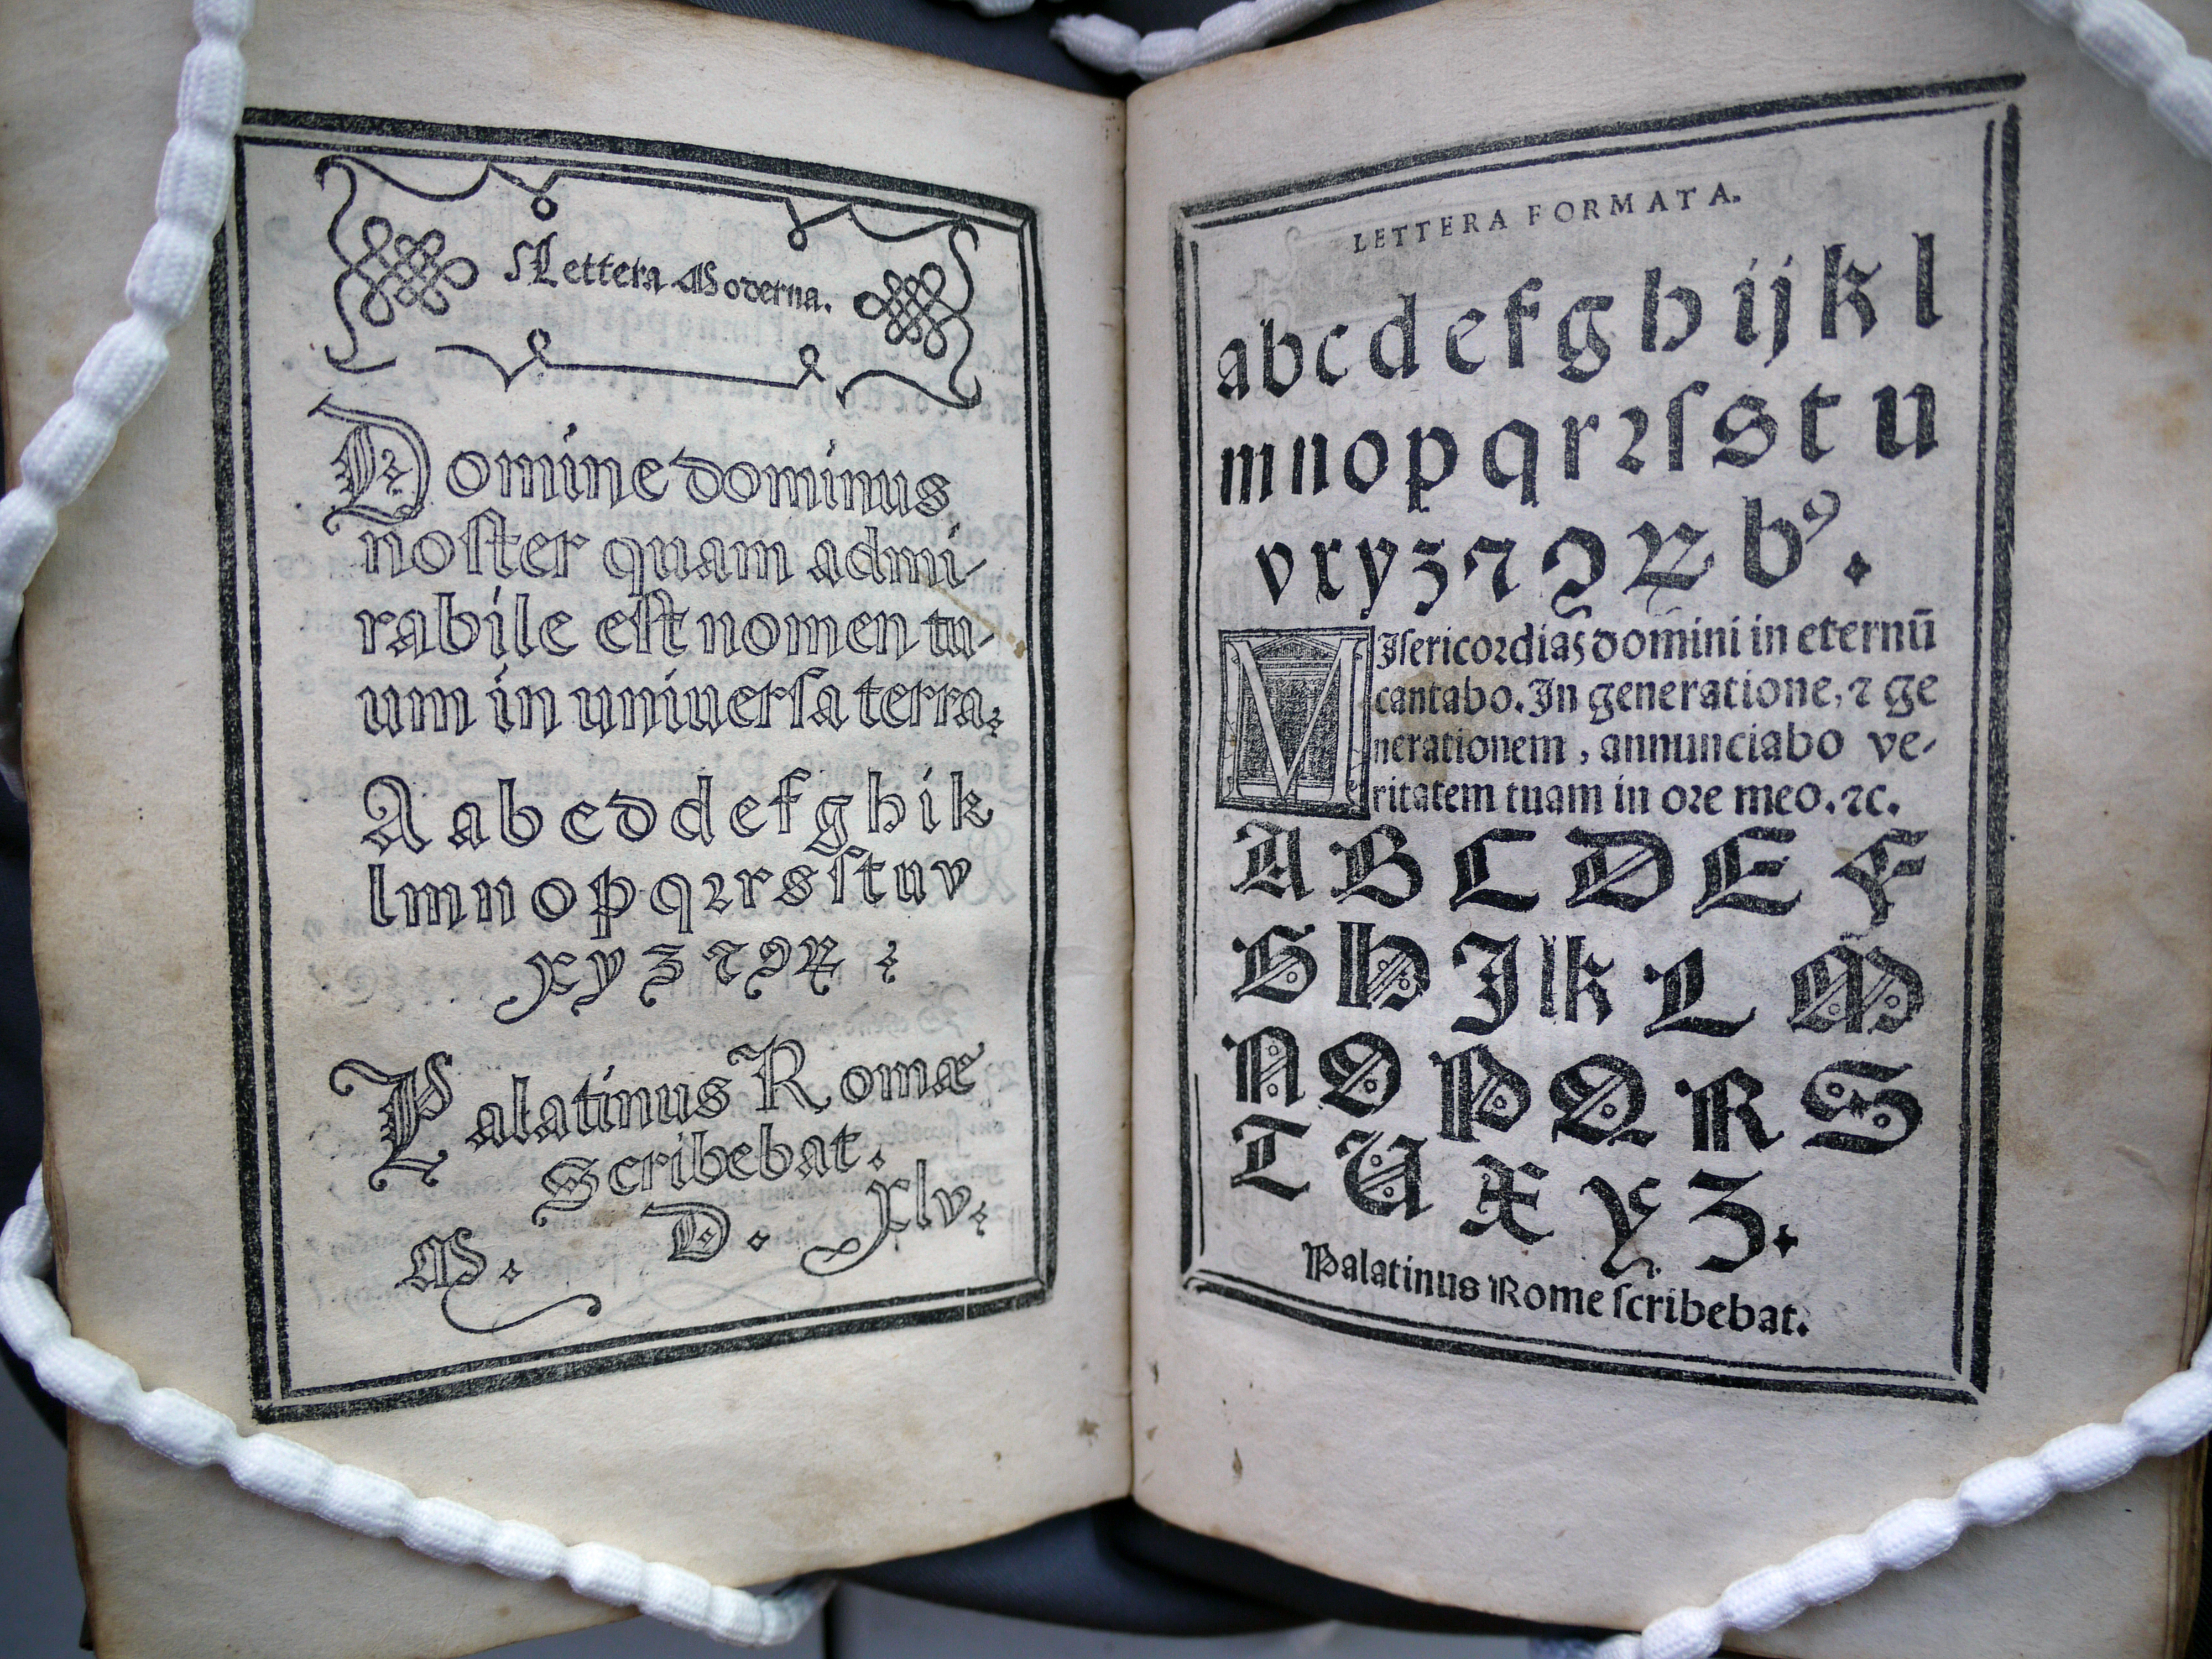 Lettera Moderna.
Domine dominus
noſter quam admi-
rabile eſt nomen tu-
um in uniuerſa terra:
A a b c d d e f g h i k
l m n o p q ꝛ r s ſ t u v
x y z ⁊ ꝯ ꝝ :
Palatinus Romæ
Scribebat.
M. D. xlv:
LETTERA FORMATA.
a b c d e f g h i j k l
m n o p q r ꝛ ſ s t u
v x y z ⁊ ꝯ ꝝ bꝰ.
MIſericoꝛdias domini in eternū
cantabo. In generatione, ⁊ ge
nerationem, annunciabo ve-
ritatem tuam in oꝛe meo. ⁊c.
A B C D E F
G H I K L M
N O P Q R S
T U X Y Z.
Palatinus Rome ſcribebat.